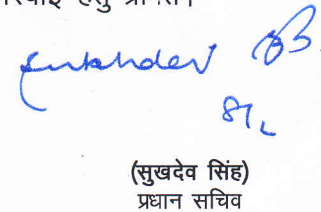 हेतु
Sukhdev
8/2
(सुखदेव सिंह)
प्रधान सचिव